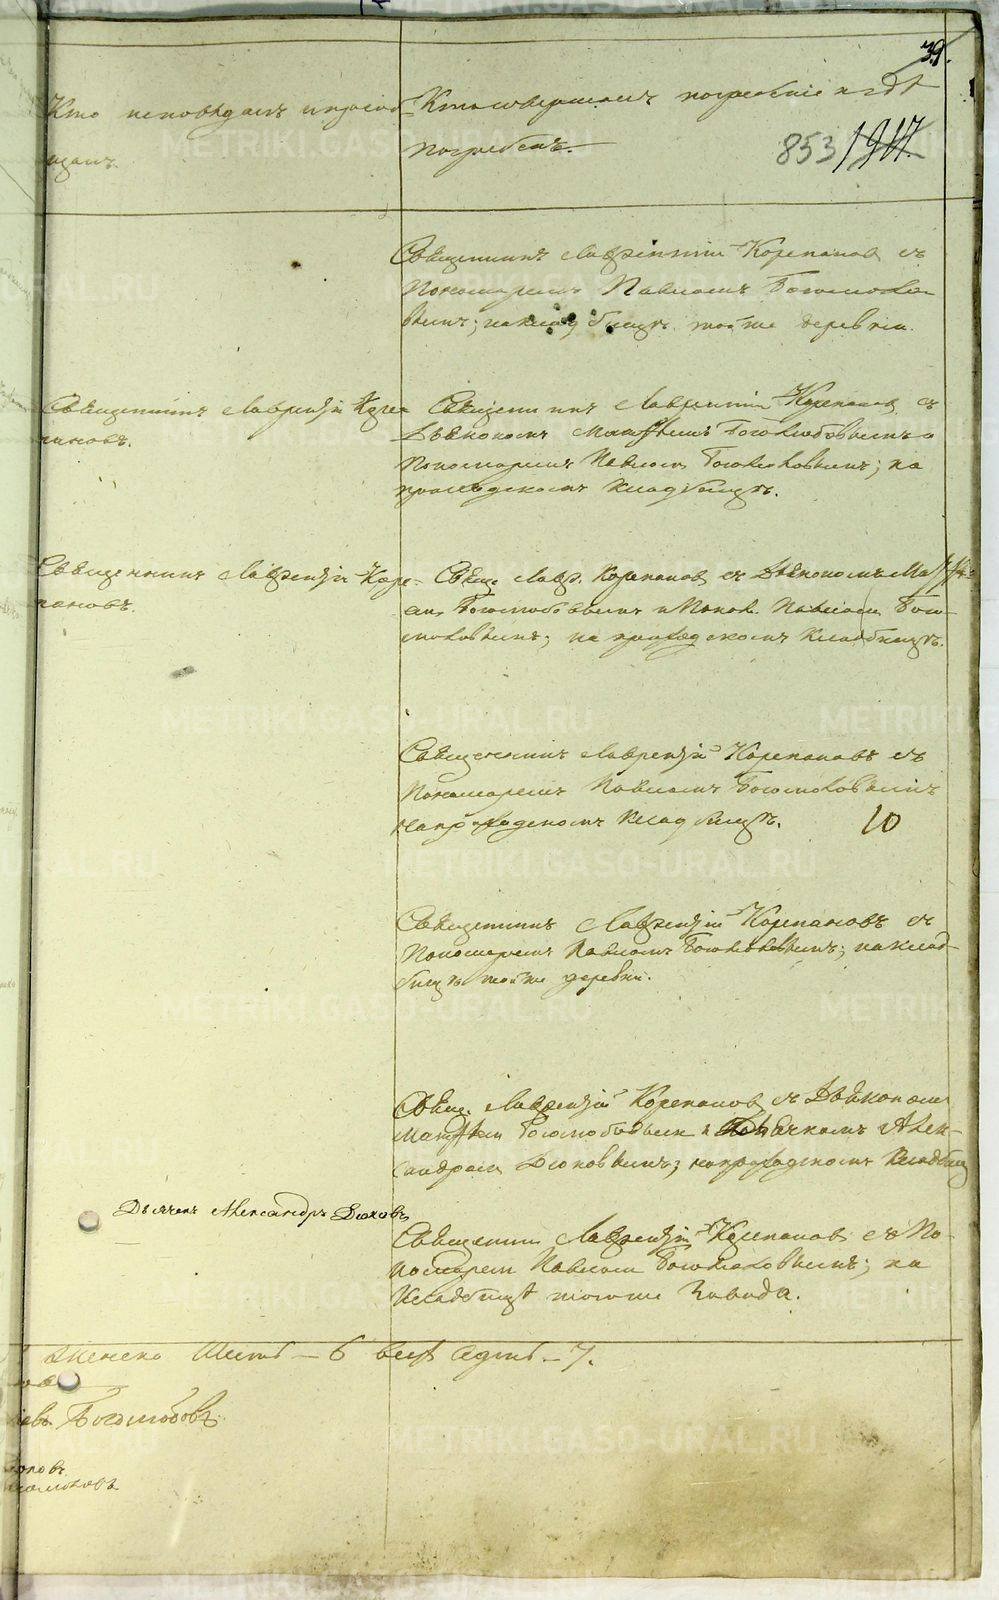 39.
Кто исповѣдалъ и пріоб-
щалъ.
Кто совершалъ погребеніе и гдѣ
погребенъ.
853
Священникъ Лаврентій Корепановъ съ
Пономаремъ Павломъ Богомоло-
вымъ; на кладбищѣ той же деревни.
Священникъ Лаврентій Коре-
пановъ.
Священникъ Лаврентій Корепановъ съ
Діакономъ Матфіемъ Боголюбовымъ и
Пономаремъ Павломъ Богомоловымъ; на
приходскомъ кладбищѣ.
Священникъ Лаврентій Коре-
пановъ.
Свящ. Лавр. Корепановъ съ Діакономъ Матфі-
емъ Боголюбовымъ и Поном. Павломъ Бого-
моловымъ; на приходскомъ кладбищѣ.
Священникъ Лаврентій Корепановъ съ
Пономаремъ Павломъ Богомоловымъ
на приходскомъ кладбищѣ.
10
Священникъ Лаврентій Корепановъ съ
Пономаремъ Павломъ Богомоловымъ; на клад-
бищѣ той же деревни.
Свящ. Лаврентій Корепановъ съ Діакономъ
Матфіемъ Боголюбовымъ и Дьячкомъ Алек-
сандромъ Дюковымъ; на приходскомъ кладбищѣ
Дьячекъ Александръ Дюковъ
Священникъ Лаврентій Корепановъ съ По-
номаремъ Павломъ Богомоловымъ; на
кладбищѣ того же завода.
женска шесть – 6 всѣхъ седмь – 7.
Боголюбовъ
METRIKI.GASO-URAL.RU